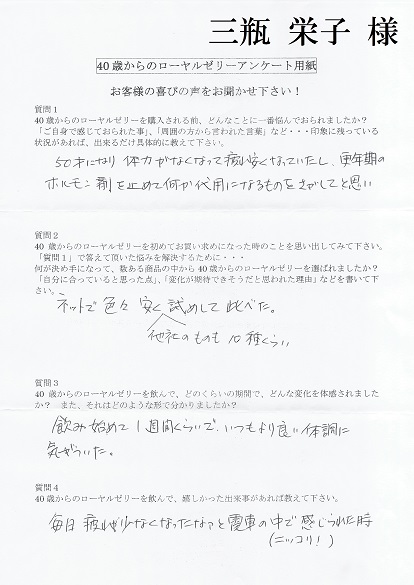 三瓶 栄子 様
40歳からのローヤルゼリーアンケート用紙
お客様の喜びの声をお聞かせ下さい！
質問１
40歳からのローヤルゼリーを購入される前、どんなことに一番悩んでおられましたか？
「ご自身で感じておられた事」、「周囲の方から言われた言葉」など・・・印象に残っている
状況があれば、出来るだけ具体的に教えて下さい。
50才になり 体力がなくなって疲れ安くなっていたし、更年期の
ホルモン剤を止めて何か代用になるものをさがしてと思い
質問２
40 歳からのローヤルゼリーを初めてお買い求めになった時のことを思い出してみて下さい。
「質問１」で答えて頂いた悩みを解決するために・・・
何が決め手になって、数ある商品の中から 40 歳からのローヤルゼリーを選ばれましたか？
「自分に合っていると思った点」、「変化が期待できそうだと思われた理由」などを書いて下
さい。
ネットで色々 安く 試めして 比べた。
他社のものも 10種くらい
質問３
40 歳からのローヤルゼリーを飲んで、どのくらいの期間で、どんな変化を体感されました
か？ また、それはどのような形で分かりましたか？
飲み始めて 1週間くらいで、いつもより良い体調に
気がついた。
質問４
40 歳からのローヤルゼリーを飲んで、嬉しかった出来事があれば教えて下さい。
毎日 疲れが少なくなったなァと電車の中で感じられた時
(ニッコリ！)